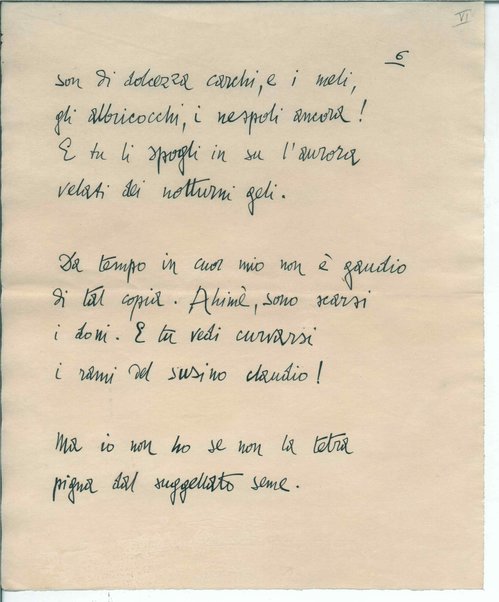 VI
6
son di dolcezza carchi, e i meli,
gli albricocchi, i nespoli ancora!
E tu li spogli in su l'aurora
velati dei notturni geli.
Da tempo in cuor mio non è gaudio
di tal copia. Ahimè, sono scarsi
i doni. E tu vedi curvarsi
i rami del susino claudio!
Ma io non ho se non la tetra
pigna dal suggellato seme.